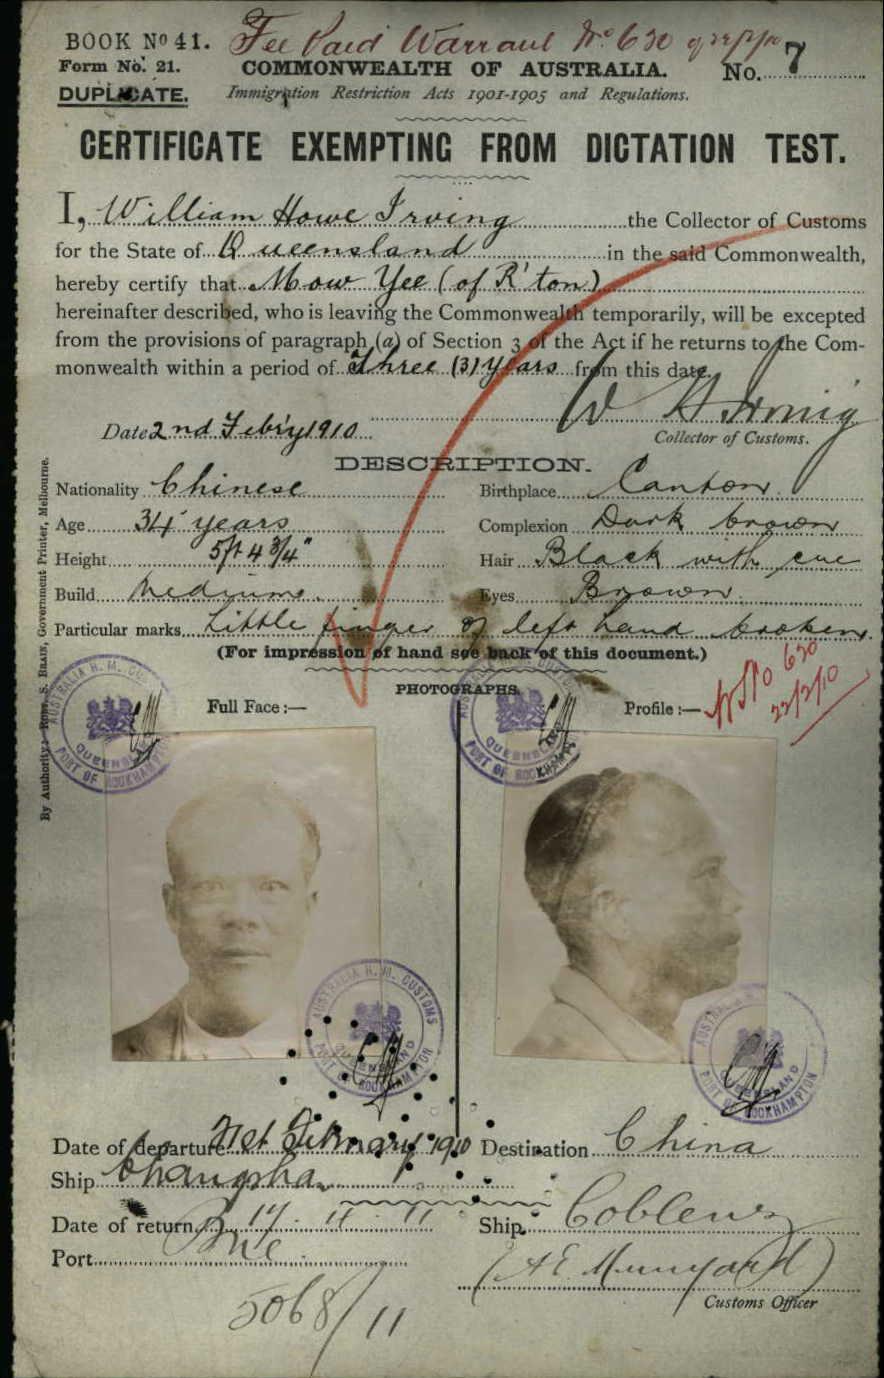 BOOK No 41. Fee Paid Warrant No 630 of 22/2/10
Form No. 21. COMMONWEALTH OF AUSTRALIA. No. 7
DUPLICATE. Immigration Restriction Acts 1901-1905 and Regulations.
CERTIFICATE EXEMPTING FROM DICTATION TEST.
I, William Howe Irving the Collector of Customs
for the State of Queensland in the said Commonwealth,
hereby certify that Mow Yee (of R'ton)
hereinafter described, who is leaving the Commonwealth temporarily, will be excepted
from the provisions of paragraph (a) of Section 3 of the Act if he returns to the Com-
monwealth within a period of Three (3) years from this date.
W H Irving
Date 2nd Feb'y 1910
Collector of Customs.
DESCRIPTION.
Nationality Chinese Birthplace Canton
Age 34 years Complexion Dark brown
Height 5ft 4 3/4" Hair Black with cue
Build Medium. Eyes Brown
Particular marks Little finger of left hand broken.
(For impression of hand see back of this document.)
PHOTOGRAPHS.
Full Face:— Profile:—
630
22/2/10
By Authority: ROBT. S. BRAIN, Government Printer, Melbourne.
AUSTRALIA H. M. CUSTOMS
QUEENSLAND
PORT OF ROCKHAMPTON
AUSTRALIA H. M. CUSTOMS
QUEENSLAND
PORT OF ROCKHAMPTON
AUSTRALIA H. M. CUSTOMS
QUEENSLAND
PORT OF ROCKHAMPTON
AUSTRALIA H. M. CUSTOMS
QUEENSLAND
PORT OF ROCKHAMPTON
Date of departure 21st February 1910 Destination China
Ship Changsha
Date of return 17. 11. 11 Ship Coblenz
Port Bne
(A E Munyard)
Customs Officer
5068/11